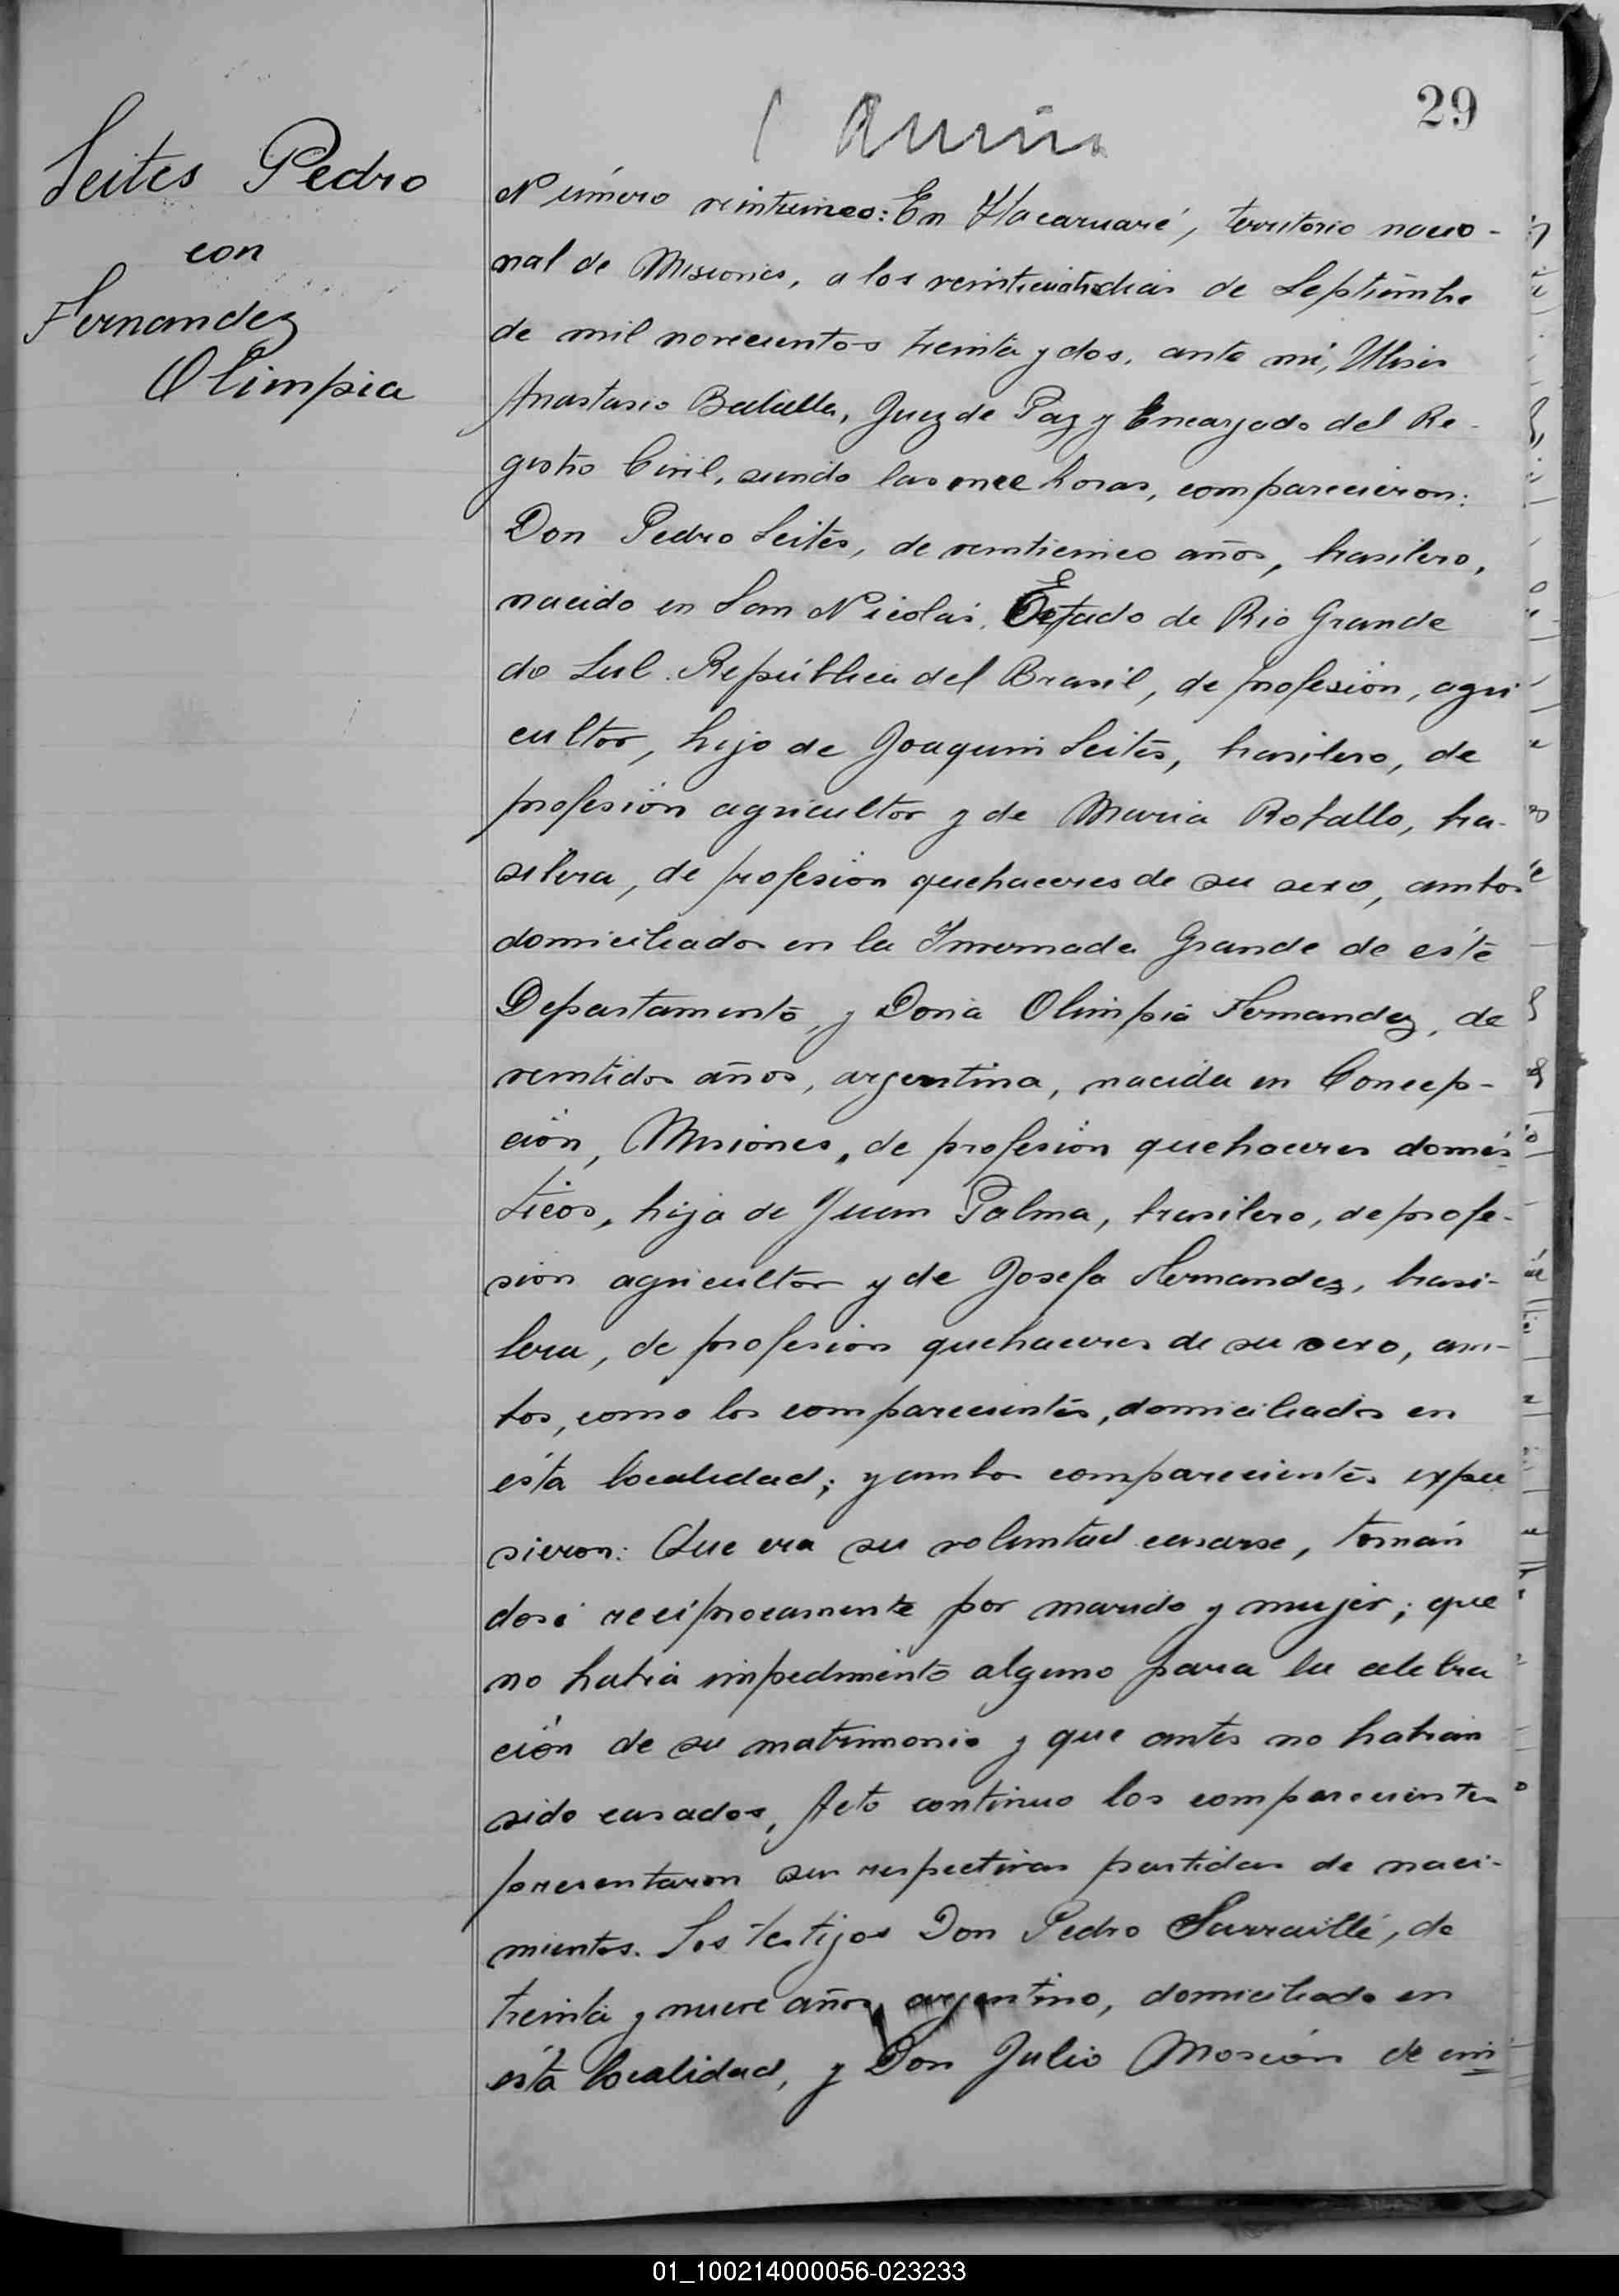 29
Leites Pedro
con
Fernandez
Olimpia
Número veinticinco: En Itacaruaré, territorio nacio-
nal de Misiones, a los dias de Septiembre
de mil novecientos treinta y dos, ante mi, Ulises
Anastasio Balalla, Juez de Paz y Encargado del Re-
gistro Civil, siendo las once horas, comparecieron:
Don Pedro Leites, de veinticinco años, brasilero,
nacido en San Nicolás, Estado de Rio Grande
do Sul. República del Brasil, de profesión, agri
cultor, hijo de Joaquin Leites, brasilero, de
profesión agricultor y de Maria Rofallo, bra-
silera, de profesión quehaceres de su sexo, ambos
domiciliados en la Invernada Grande de este
Departamento, y Doña Olimpia Fernandez, de
veintidos años, argentina, nacida en Concep-
ción, Misiones, de profesión quehaceres domés
ticos, hija de Juan Palma, brasilero, de profe-
sión agricultor y de Josefa Fernandez, brasi-
lera, de profesión quehaceres de su sexo, am-
bos, como los comparecientes, domiciliados en
ésta localidad; y ambos comparecientes expu
sieron: Que era su voluntad casarse, tomán
dose reciprocamente por marido y mujer; que
no habia impedimento alguno para la celebra
ción de su matrimonio y que antes no habian
sido casados, Acto continuo los comparecientes
presentaron sus respectivas partidas de naci-
mientos. Los testigos Don Pedro Sarraillé, de
treinta y nueve años, argentino, domiciliado en
ésta localidad, y Don Julio Morión de
01_100214000056-023233